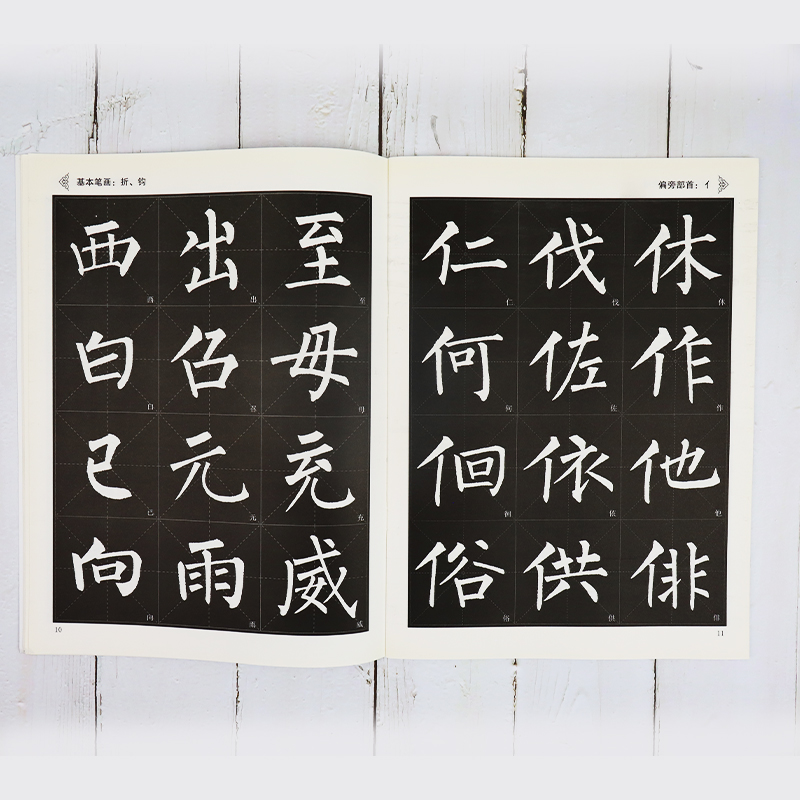 基本笔画：折、钩
西 出 至
西 出 至
白 召 母
白 召 母
已 元 充
已 元 充
向 雨 威
向 雨 威
10
偏旁部首：亻
仁 伐 休
仁 伐 休
何 佐 作
何 佐 作
佪 依 他
佪 依 他
俗 供 俳
俗 供 俳
11